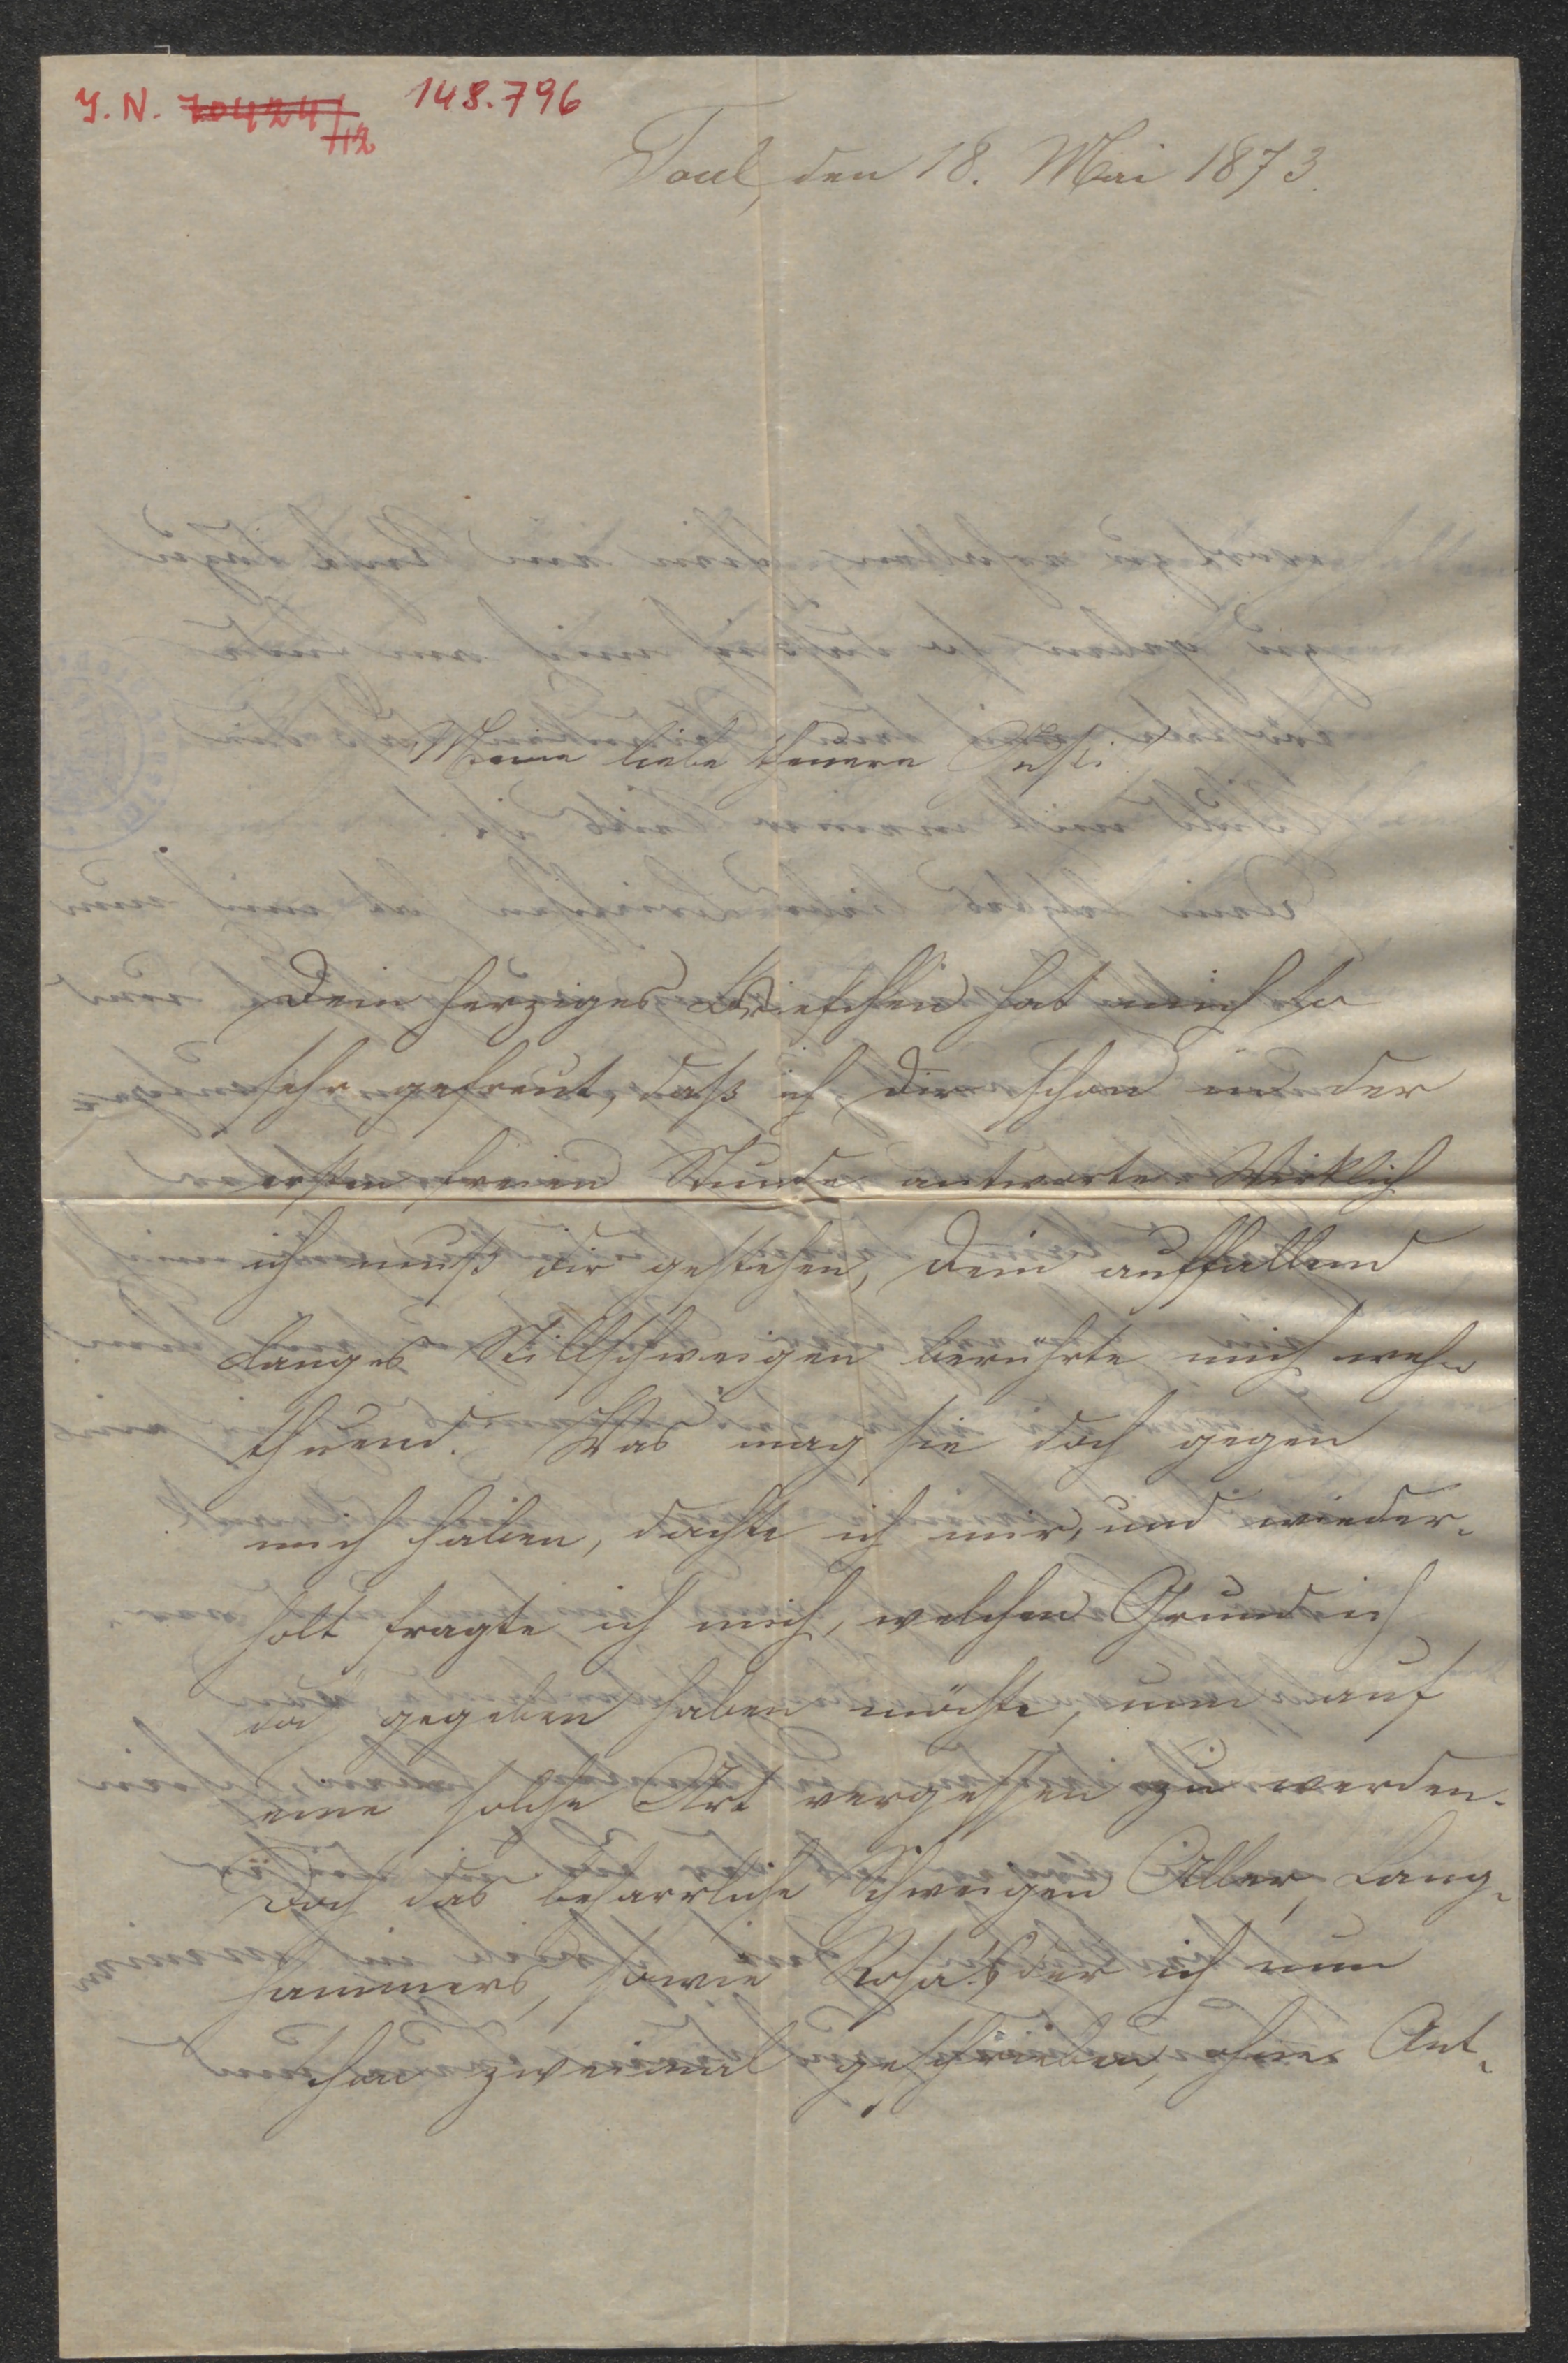 J. N. 70424/112 148.796
Toul, den 18. Mai 1873.
Meine liebe theuere
Dein herziges Briefchen hat mich so
sehr gefreut, daß ich Dir schon in der
ersten freien Stunde antworte. Wirklich
ich muß dir gestehen, Dein auffallend
langes Stillschweigen berührte mich wehe
thuend. Was mag sie doch gegen
mich haben, dachte ich mir, und wieder-
holt fragte ich mich, welchen Grund ich
da gegeben haben möchte, um auf
eine solche Art vergessen zu werden.
Doch das beharrliche Schweigen Aller, Lang-
hammers, sowie Rosa's der ich nun
schon zweimal geschrieben, ohne Ant-